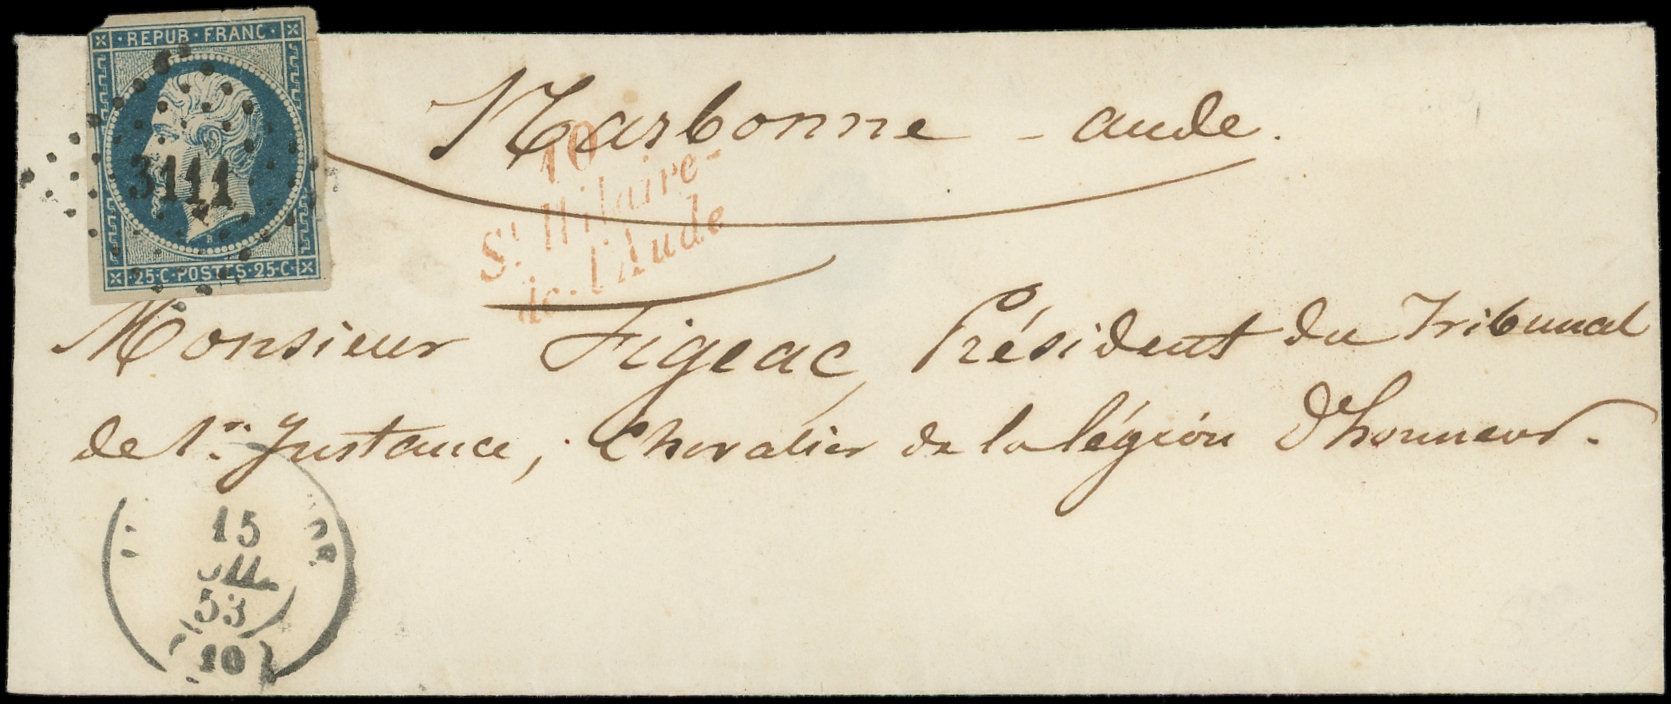 REPUB · FRANC ·
3111
· 25 · C · POSTES · 25 · C ·
Narbonne - aude.
10
St Hilaire-
de-l'Aude
Monsieur Figeac, Président du Tribunal
de 1re Instance, Chevalier de la légion d'honneur.
15
JUIL
53
(10)